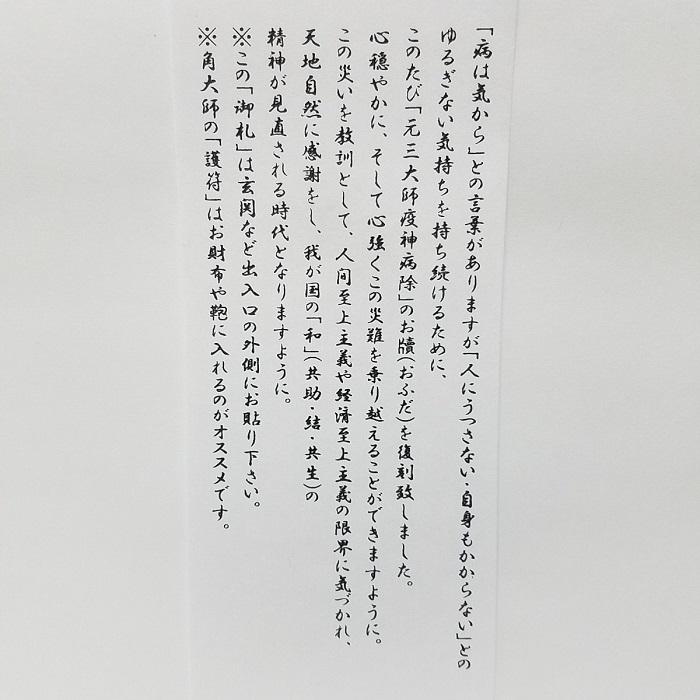 「病は気から」との言葉がありますが「人にうつさない・自身もかからない」との
ゆるぎない気持ちを持ち続けるために、
このたび「元三大師疫神病除」のお牘(おふだ)を復刻致しました。
心穏やかに、そして心強くこの災難を乗り越えることができますように。
この災いを教訓として、人間至上主義や経済至上主義の限界に気づかれ、
天地自然に感謝をし、我が国の「和」(共助・結・共生)の
精神が見直される時代となりますように。
※この「御札」は玄関など出入口の外側にお貼り下さい。
※角大師の「護符」はお財布や鞄に入れるのがオススメです。